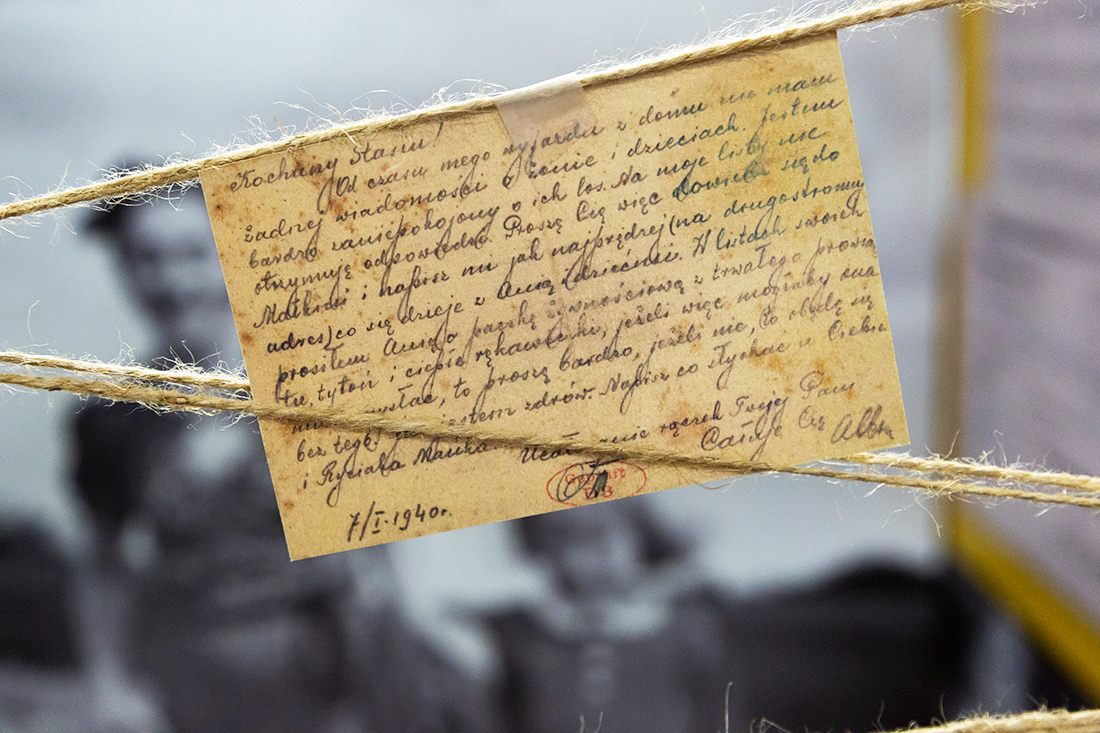 Kochany Stasiu!
Od czasu mego wyjazdu z domu nie mam
żadnej wiadomości o żonie i dzieciach. Jestem
bardzo zaniepokojony o ich los. Na moje listy nie
otrzymuję odpowiedzi. Proszę Cię więc dowiedz się do
Matkini i napisz mi jak najprędzej (na drugostronny
adres) co się dzieje z Anią i dziećmi. W listach swoich
prosiłem Anię o paczkę żywnościową z trwałego prowian
tu, tytoń i ciepłe rękawiczki, jeżeli więc mogłaby ona
mi wysłać, to proszę bardzo, jeżeli nie, to obejdę się
bez tego. zdrów. Napisz co słychać u Ciebie
i Rysia rączek Twojej Pani
Całuję Cię Albin
7/I.1940r.